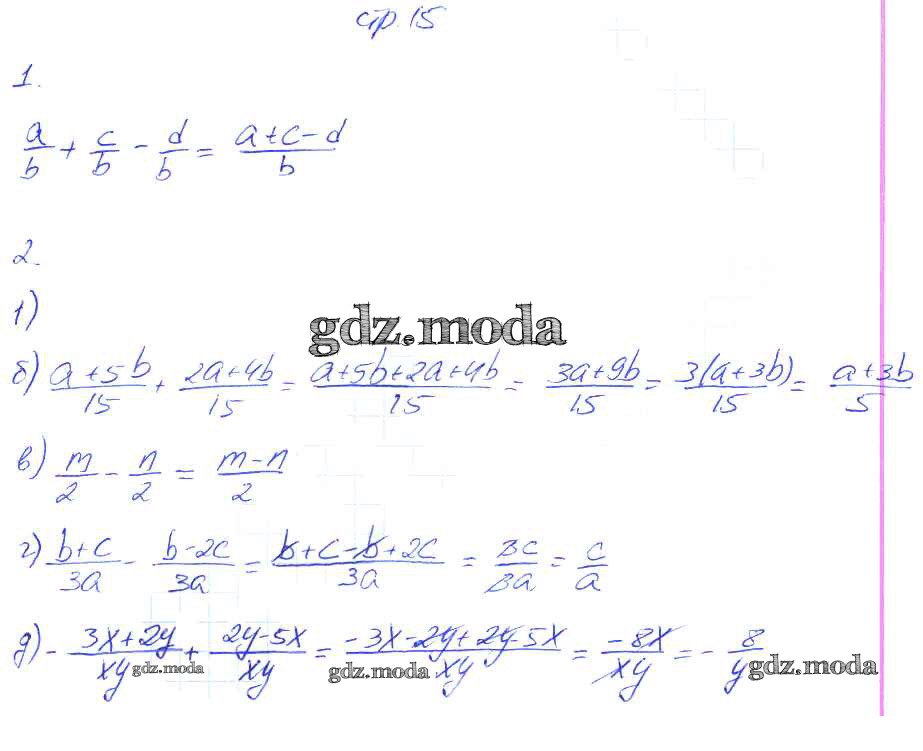 стр. 15
1.
a/b + c/b - d/b = (a+c-d)/b
2.
1)
gdz.moda
б) (a+5b)/15 + (2a+4b)/15 = (a+5b+2a+4b)/15 = (3a+9b)/15 = 3(a+3b)/15 = (a+3b)/5
в) m/2 - n/2 = (m-n)/2
г) (b+c)/3a - (b-2c)/3a = (b+c-b+2c)/3a = 3c/3a = c/a
д) - (3x+2y)/xy + (2y-5x)/xy = (-3x-2y+2y-5x)/xy = -8x/xy = - 8/y
gdz.moda gdz.moda gdz.moda